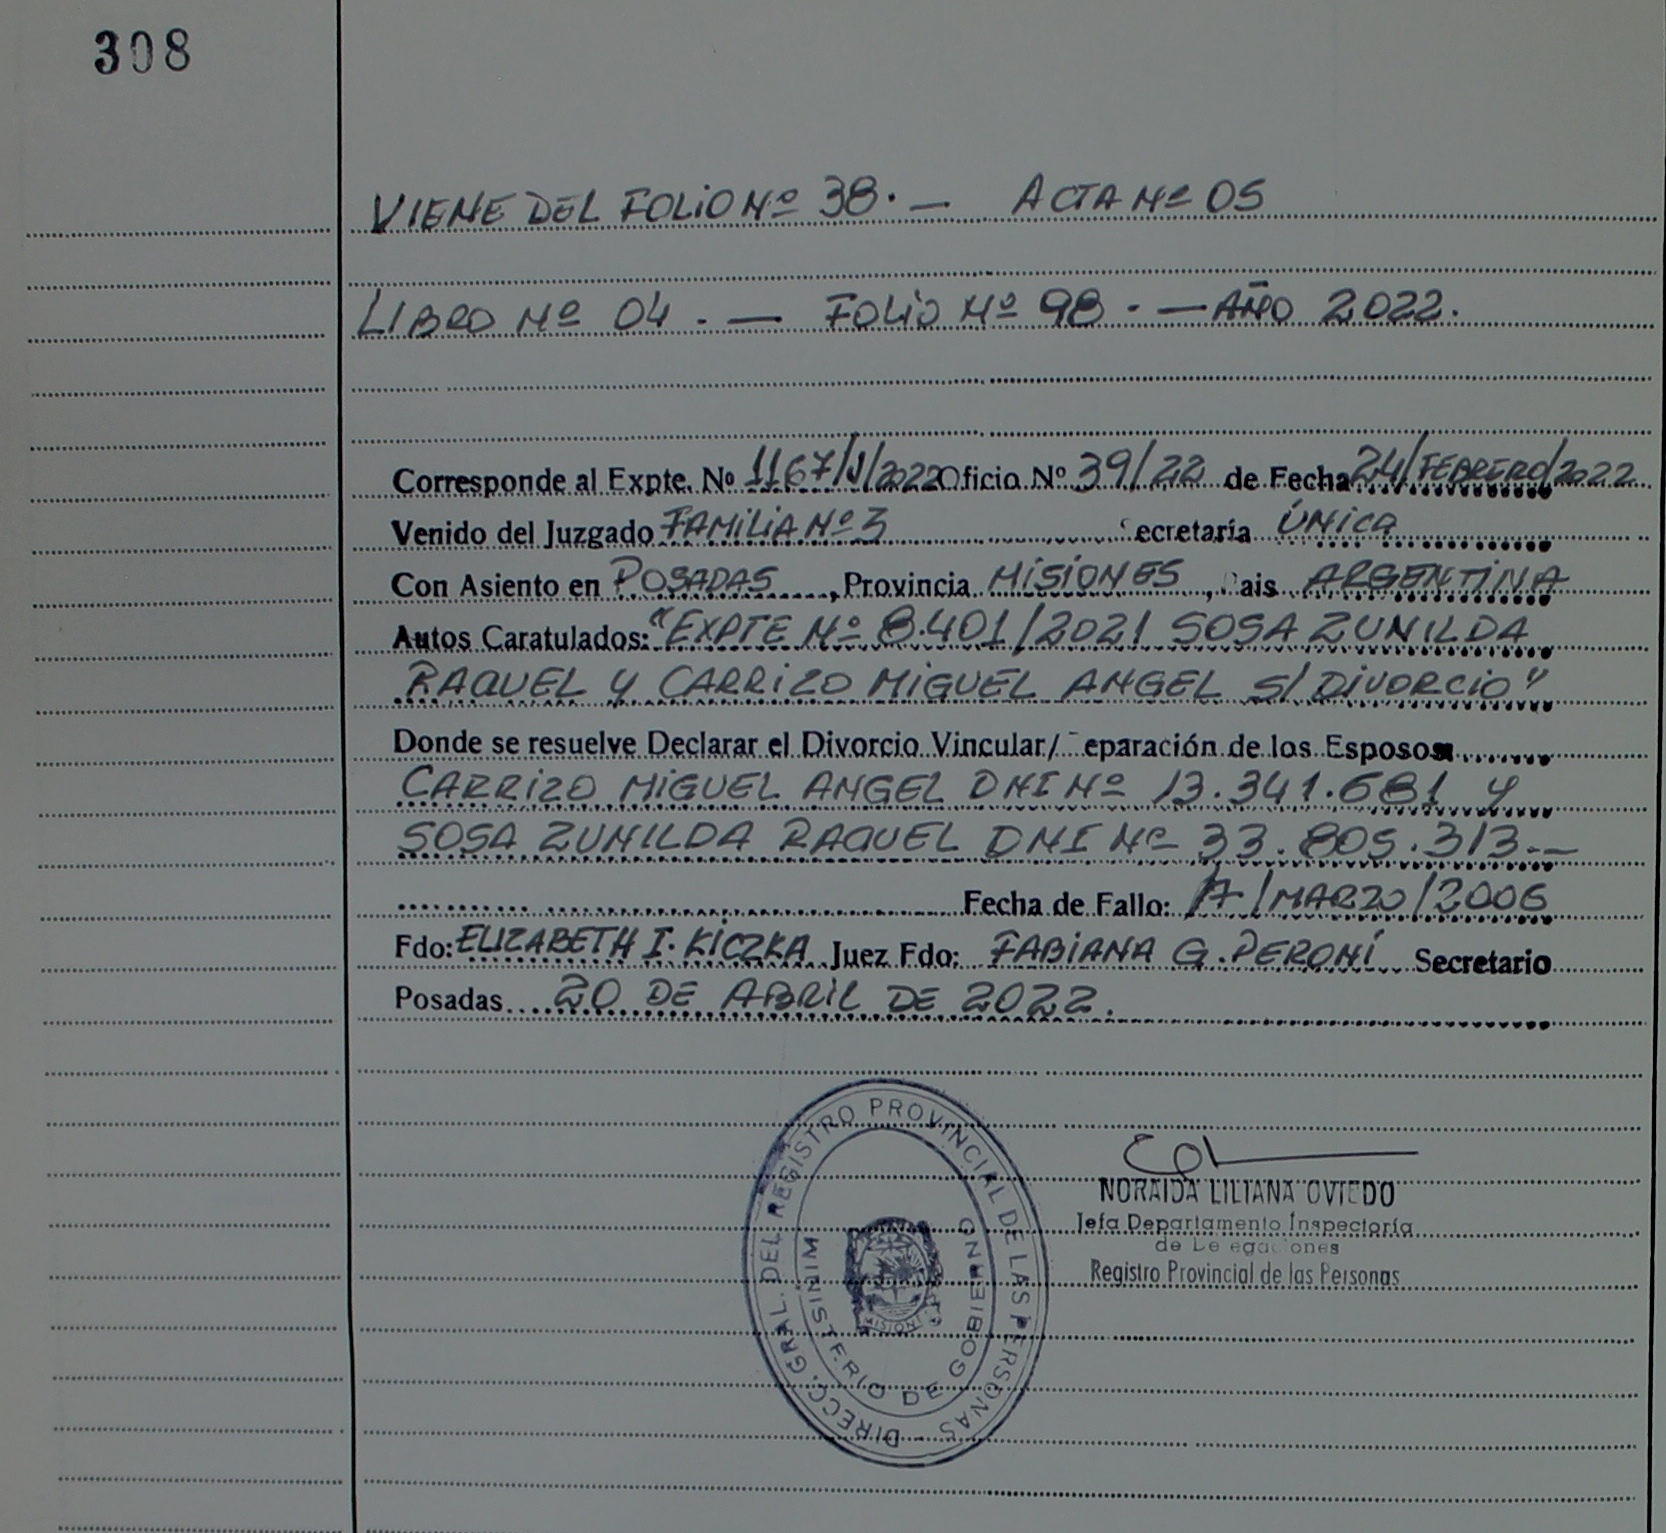 308
VIENE DEL FOLIO Nº 38.— ACTA Nº 05
LIBRO Nº 04.— FOLIO Nº 98.— AÑO 2022.
Corresponde al Expte. Nº 1167/J/2022 Oficio Nº 39/22 de Fecha 24/FEBRERO/2022
Venido del Juzgado FAMILIA Nº 3 ecretaría ÚNICA
Con Asiento en POSADAS, Provincia MISIONES, Pais ARGENTINA
Autos Caratulados: "EXPTE Nº 8.401/2021 SOSA ZUNILDA
RAQUEL Y CARRIZO MIGUEL ANGEL S/DIVORCIO"
Donde se resuelve Declarar el Divorcio Vincular/ eparación de los Esposos
CARRIZO MIGUEL ANGEL DNI Nº 13.341.681 Y
SOSA ZUNILDA RAQUEL DNI Nº 33.805.313.—
Fecha de Fallo: 17/MARZO/2006
Fdo: ELIZABETH I. KICZKA Juez Fdo: FABIANA G. PERONÍ Secretario
Posadas 20 DE ABRIL DE 2022.
DIRECC. GRAL. DEL REGISTRO PROVINCIAL DE LAS PERSONAS
MINISTERIO DE GOBIERNO
NORAIDA LILIANA OVIEDO
Jefa Departamento Inspectoría
de De egaciones
Registro Provincial de las Personas